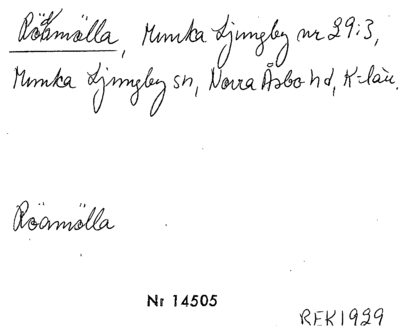 Röamölla, Munka Ljungby nr 29:3,
Munka Ljungby sn, Norra Åsbo hd, K-län.
Röamölla
Nr 14505
REK 1929